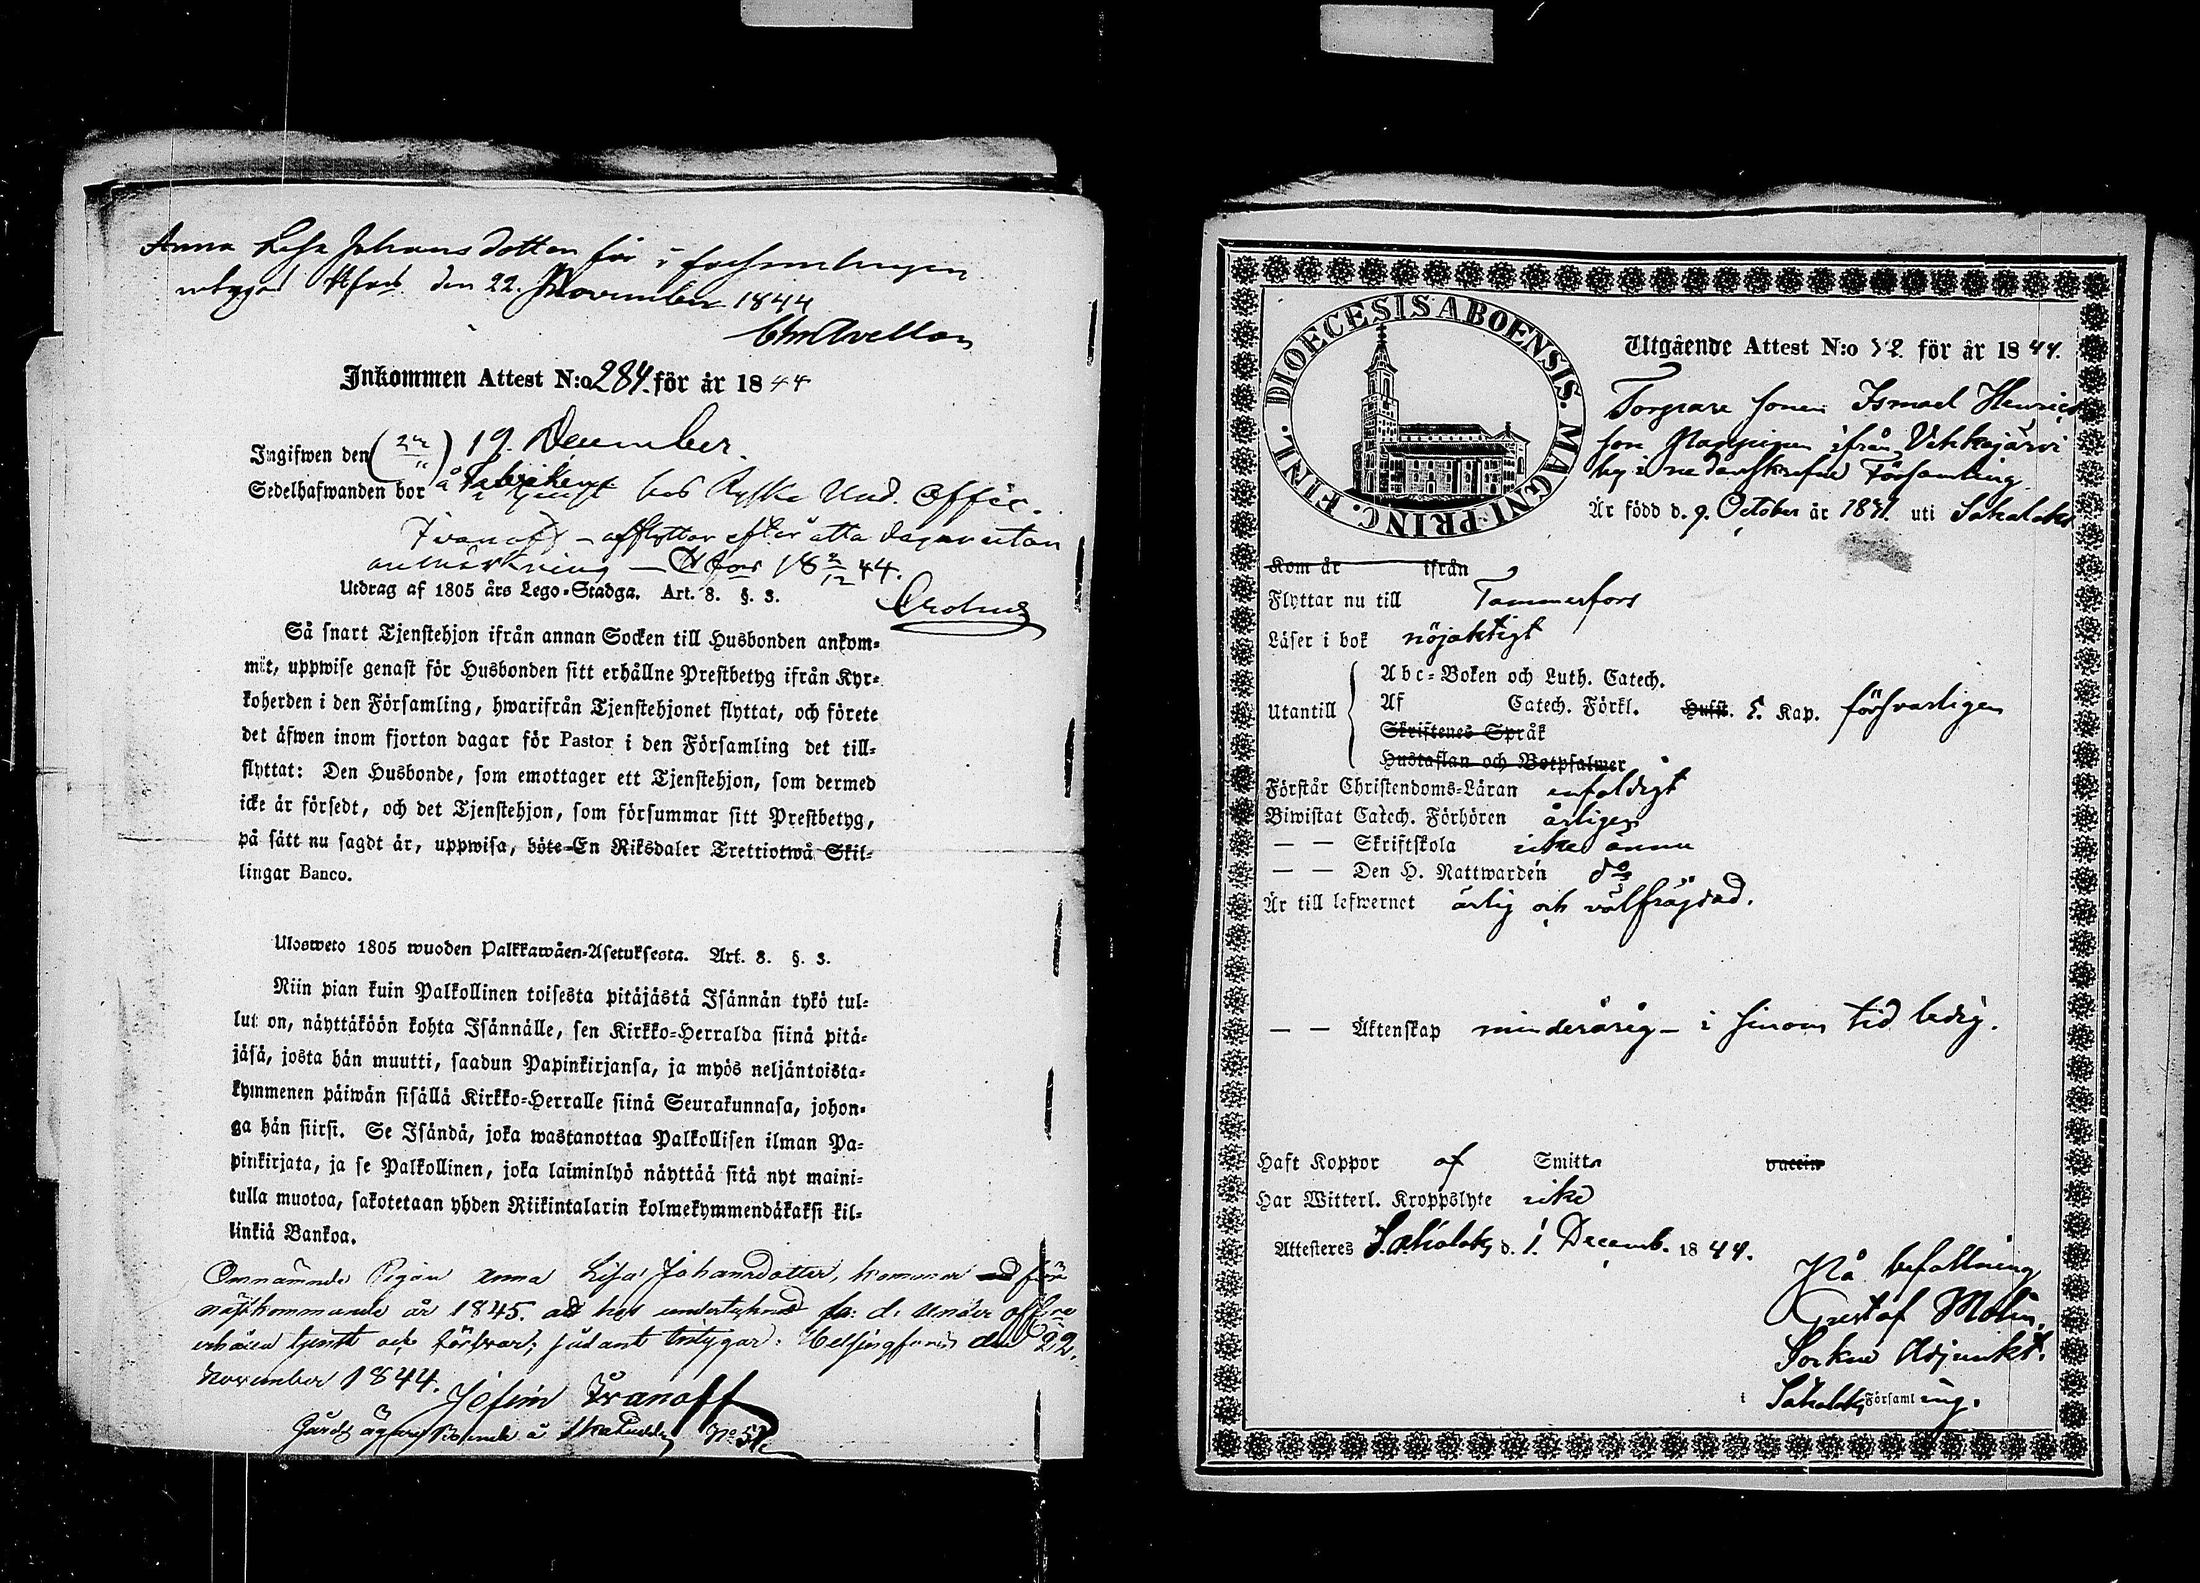 Anna Lisa Johansdotter får i församlingen
intagas H:fors den 22. November 1844
Inkommen Attest N:o 284. för år 1844
Ingifwen den 19. December.
Sedelhafwanden bor i tjenst hos Ryska Und. Offic.
Ivanoff – afflyttar efter åtta dagar utan
anmärkning – H:fors 18 2/12 44.
Utdrag af 1805 års Lego-Stadga. Art. 8. §. 3.
Så snart Tjenstehjon ifrån annan Socken till Husbonden ankom-
mit, uppwise genast för Husbonden sitt erhållne Prestbetyg ifrån Kyr-
koherden i den Församling, hwarifrån Tjenstehjonet flyttat, och förete
det äfwen inom fjorton dagar för Pastor i den Församling det till-
flyttat: Den Husbonde, som emottager ett Tjenstehjon, som dermed
icke är försedt, och det Tjenstehjon, som försummar sitt Prestbetyg,
på sätt nu sagdt är, uppwisa, böte En Riksdaler Trettiotwå Skil-
lingar Banco.
Ulosweto 1805 wuoden Palkkawäen-Asetuksesta. Art. 8. §. 3.
Niin pian kuin Palkollinen toisesta pitäjästä Isännän tykö tul-
lut on, näyttäköön kohta Isännälle, sen Kirkko-Herralda siinä pitä-
jäsä, josta hän muutti, saadun Papinkirjansa, ja myös neljäntoista-
kymmenen päiwän sisällä Kirkko-Herralle siinä Seurakunnasa, johon-
ga hän siirsi. Se Isändä, joka wastanottaa Palkollisen ilman Pa-
pinkirjata, ja se Palkollinen, joka laiminlyö näyttää sitä nyt maini-
tulla muotoa, sakotetaan yhden Riikintalarin kolmekymmendäkaksi kil-
linkiä Bankoa.
Omnämnde Pigan Anna Lisa Johansdotter, kommer för
nästkommande år 1845. att hos undertecknad f: d: Under officere
erhålla tjenst och försvar; sådant intygar: Helsingfors den 22.
November 1844. Jefim Ivanoff
Gårds ägare Boende å Skatudden No 51
DIOECESIS ABOENSIS. MAGNI PRINC. FINL.
Utgående Attest N:o 52 för år 1844.
Torpare sonen Ismael Henrics
son ifrån Vehkajärvi
by i nedanskrefne Församling
Är född d. 9. October år 1831. uti Sahalaks
Kom år ifrån
Flyttar nu till Tammerfors
Läser i bok nöjaktigt
Utantill
Abc-Boken och Luth. Catech.
Af Catech. Förkl. Hufst. 5. Kap. försvarligen
Skriftenes Språk
Hustaflan och Botpsalmer
Förstår Christendoms-Läran enfaldigt
Biwistat Catech. Förhören årligen
— — Skriftskola icke ännu
— — Den H. Nattwarden do
Är till lefwernet ärlig och välfräjdad.
— — Äktenskap minderårig – i sinom tid ledig.
Haft Koppor af Smitta vaccin
Har Witterl. Kroppslyte icke
Attesteres Sahalaks d. 1. Decemb. 1844.
På befallning
Gustaf Molin,
Sockne Adjunkt.
i Sahalaks Församling.